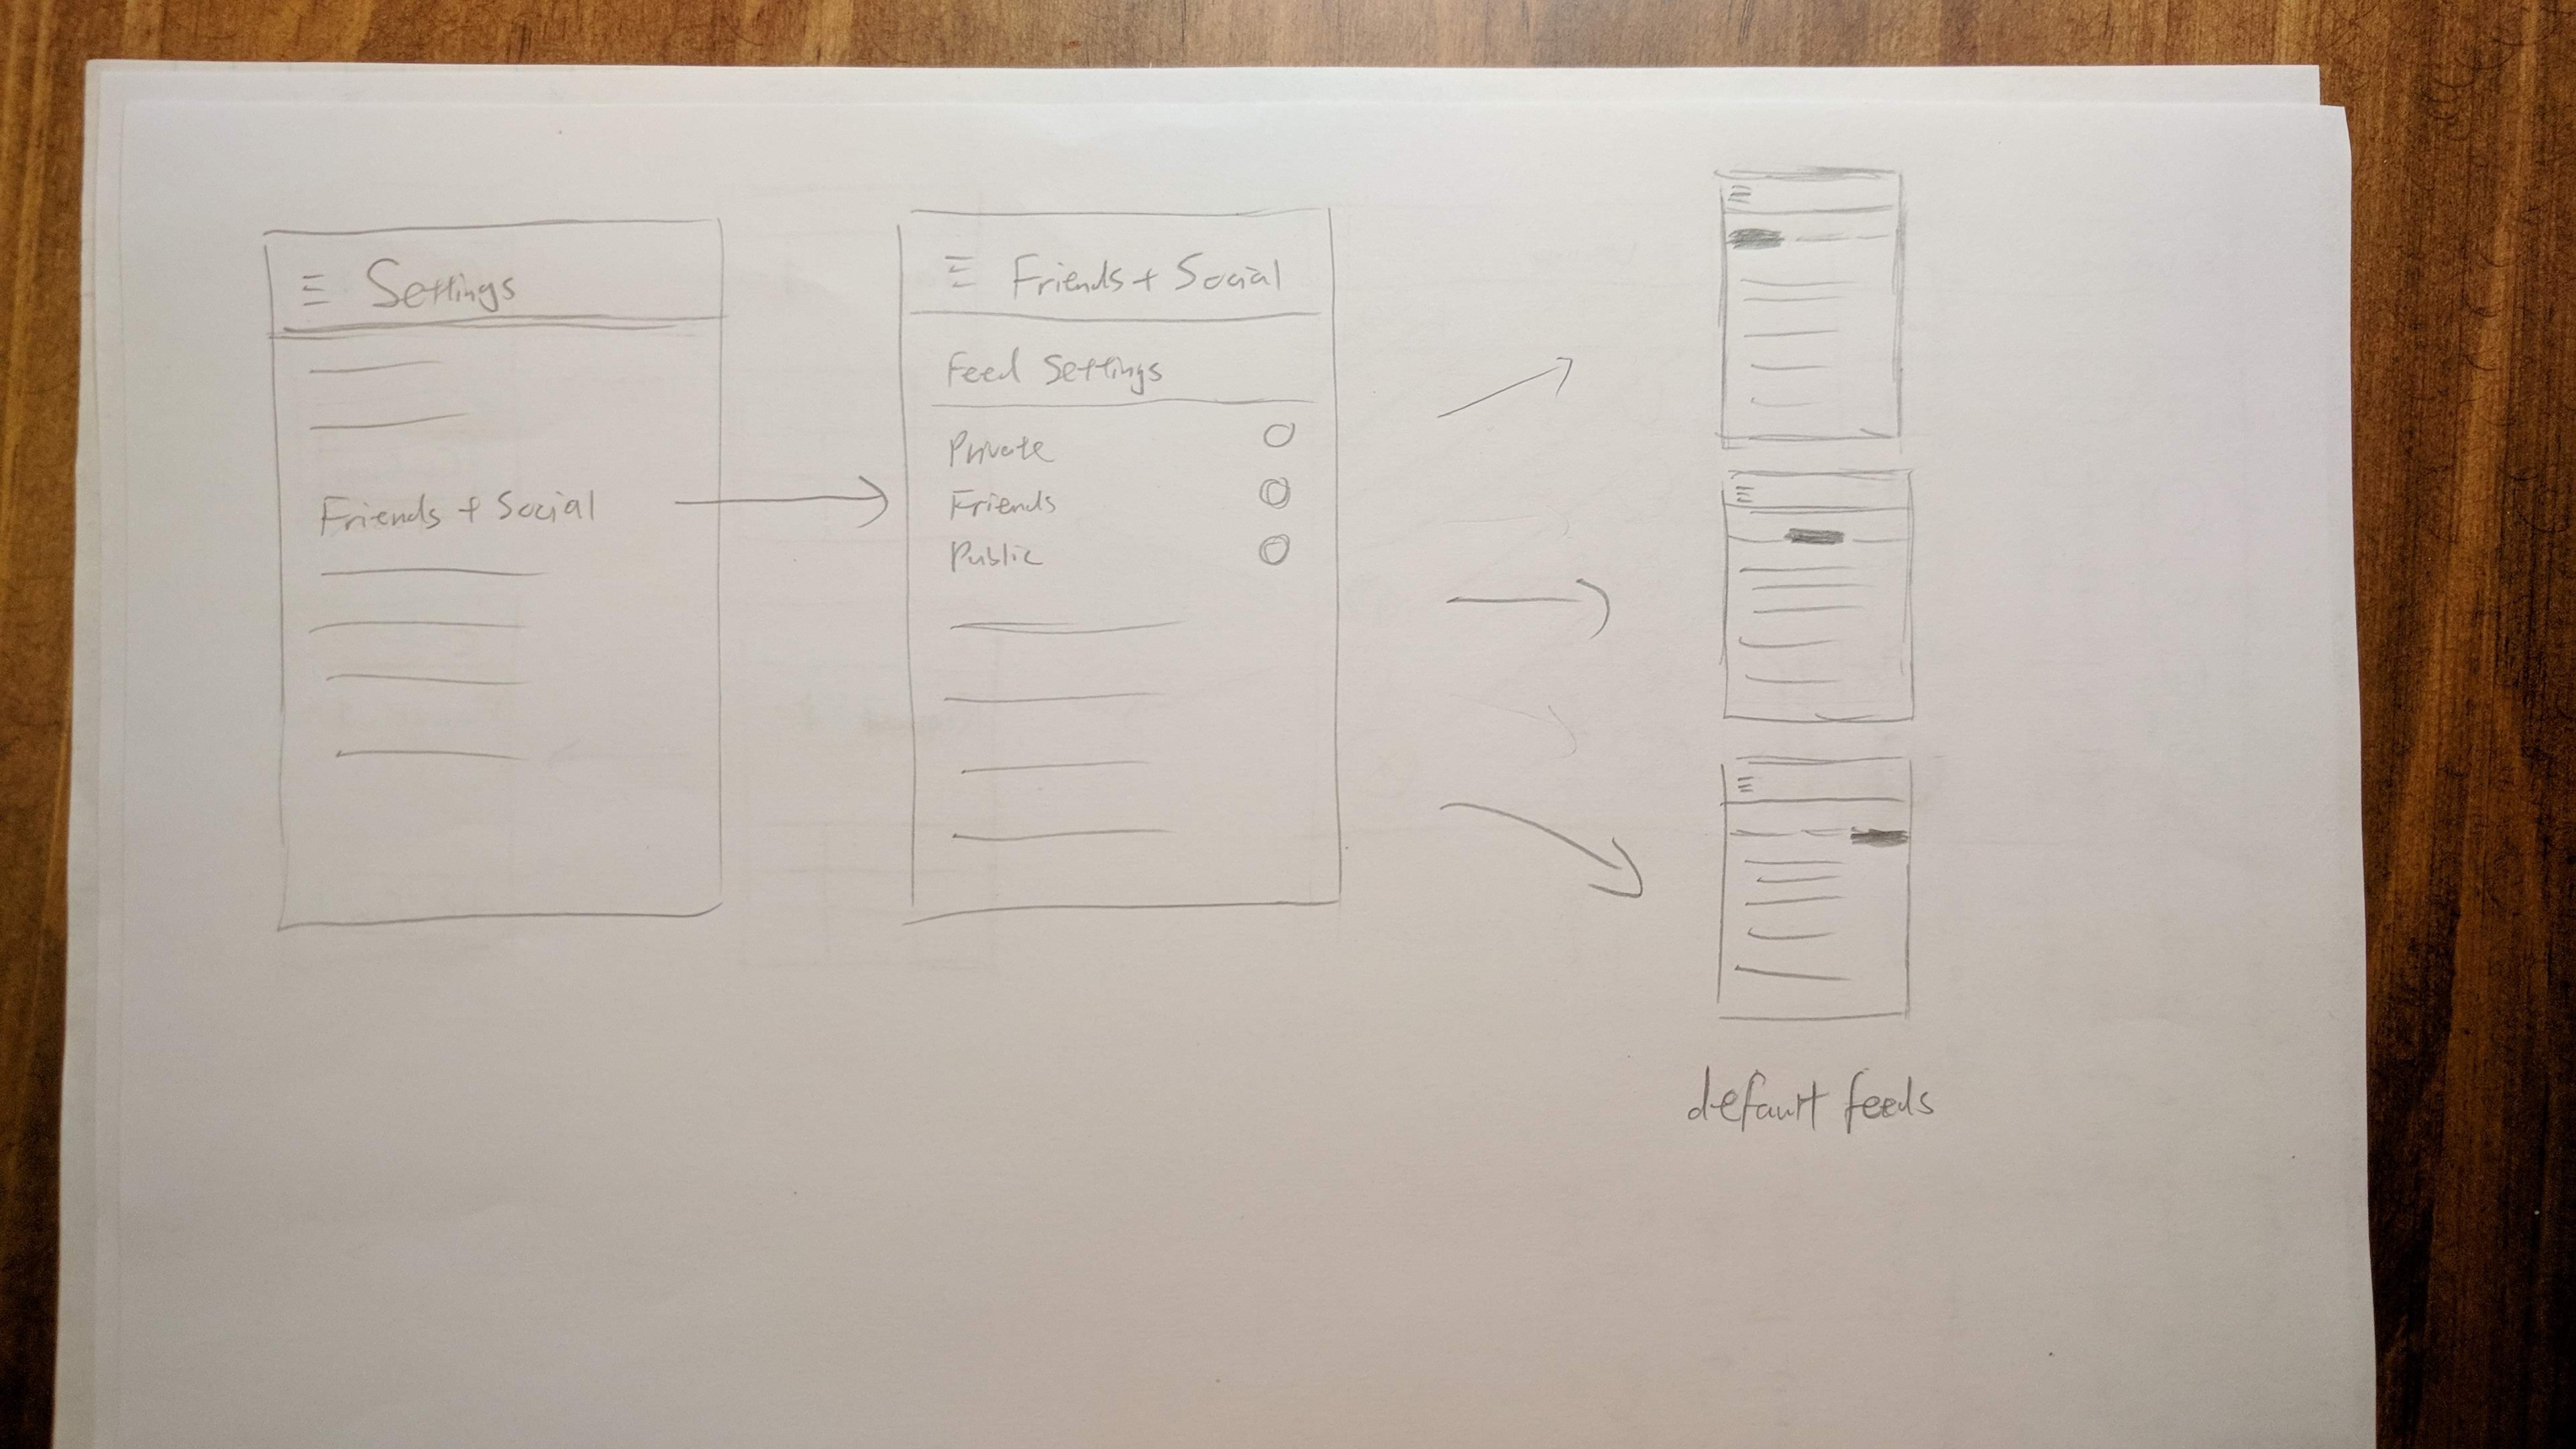 Settings
Friends + Social
Friends + Social
Feed Settings
Private
Friends
Public
default feeds